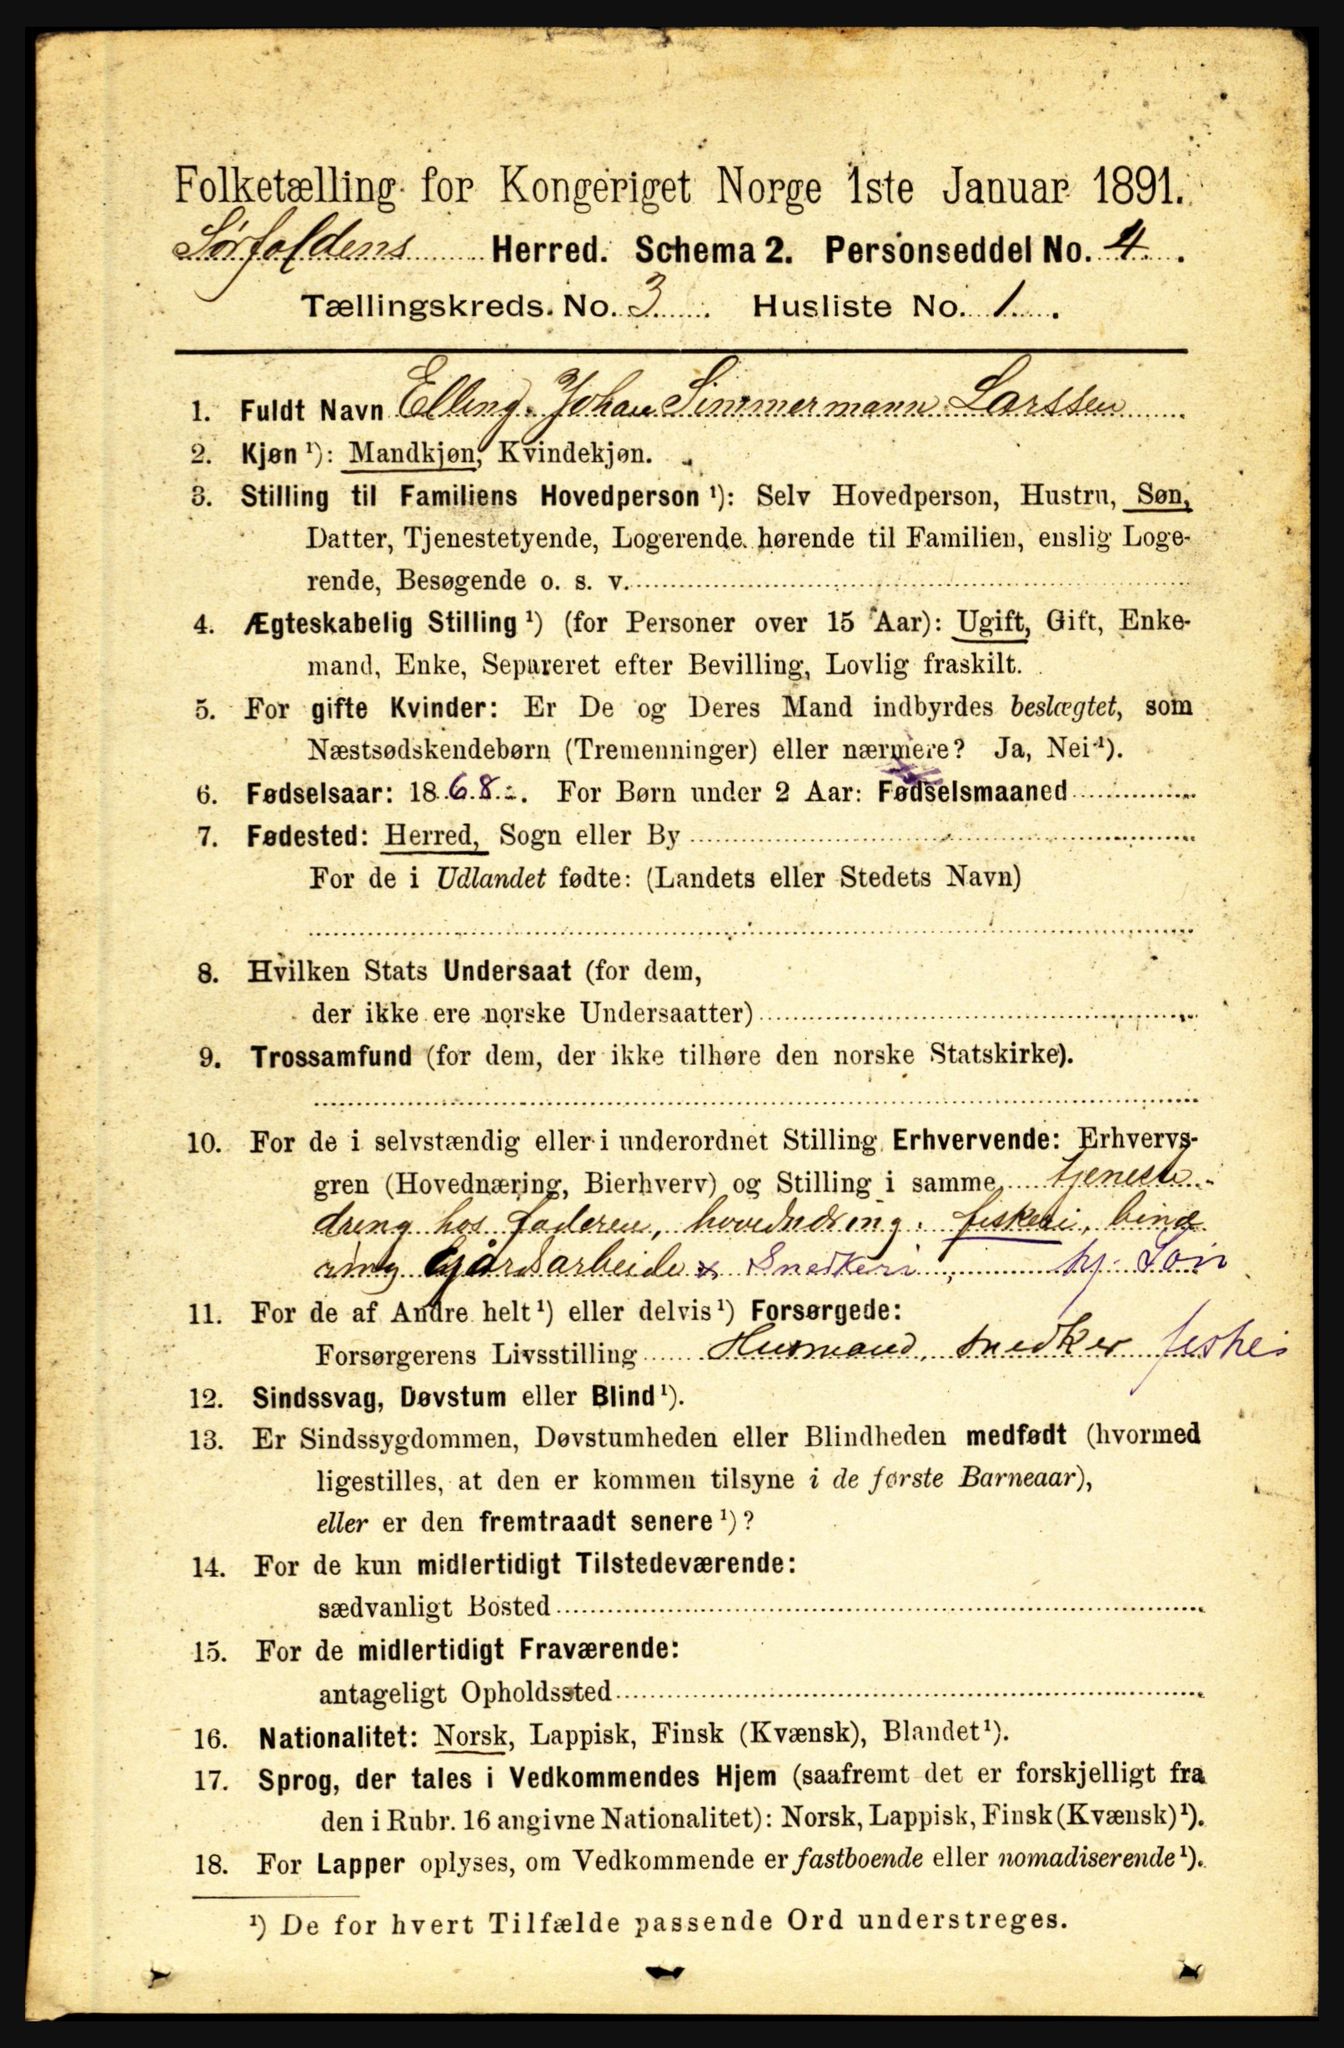 Folketælling for Kongeriget Norge 1ste Januar 1891.
Sørfoldens Herred. Schema 2. Personseddel No. 4.
Tællingskreds. No. 3. Husliste No. 1.
1. Fuldt Navn Elling Johan Simmermann Larssen
2. Kjøn¹): Mandkjøn, Kvindekjøn.
3. Stilling til Familiens Hovedperson¹): Selv Hovedperson, Hustru, Søn,
Datter, Tjenestetyende, Logerende hørende til Familien, enslig Loge-
rende, Besøgende o. s. v.
4. Ægteskabelig Stilling¹) (for Personer over 15 Aar): Ugift, Gift, Enke-
mand, Enke, Separeret efter Bevilling, Lovlig fraskilt.
5. For gifte Kvinder: Er De og Deres Mand indbyrdes beslægtet, som
Næstsødskendebørn (Tremenninger) eller nærmere? Ja, Nei¹).
6. Fødselsaar: 1868. For Børn under 2 Aar: Fødselsmaaned
7. Fødested: Herred, Sogn eller By
For de i Udlandet fødte: (Landets eller Stedets Navn)
8. Hvilken Stats Undersaat (for dem,
der ikke ere norske Undersaatter)
9. Trossamfund (for dem, der ikke tilhøre den norske Statskirke).
10. For de i selvstændig eller i underordnet Stilling Erhvervende: Erhvervs-
gren (Hovednæring, Bierhverv) og Stilling i samme tjeneste
dreng hos faderen, hovednæring. fiskeri, binæ
ring Gårdsarbeide & Snedkeri, hj. Søn
11. For de af Andre helt¹) eller delvis¹) Forsørgede:
Forsørgerens Livsstilling Husmand, snedker fisker
12. Sindssvag, Døvstum eller Blind¹).
13. Er Sindssygdommen, Døvstumheden eller Blindheden medfødt (hvormed
ligestilles, at den er kommen tilsyne i de første Barneaar),
eller er den fremtraadt senere¹)?
14. For de kun midlertidigt Tilstedeværende:
sædvanligt Bosted
15. For de midlertidigt Fraværende:
antageligt Opholdssted
16. Nationalitet: Norsk, Lappisk, Finsk (Kvænsk), Blandet¹).
17. Sprog, der tales i Vedkommendes Hjem (saafremt det er forskjelligt fra
den i Rubr. 16 angivne Nationalitet): Norsk, Lappisk, Finsk (Kvænsk)¹).
18. For Lapper oplyses, om Vedkommende er fastboende eller nomadiserende¹).
¹) De for hvert Tilfælde passende Ord understreges.